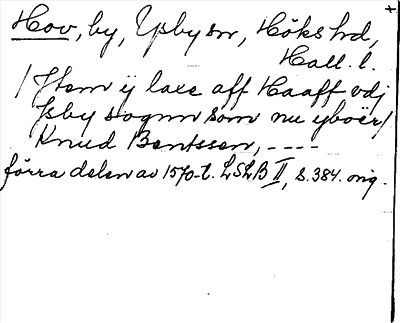 Hov, by, Ysby sn, Höks hd,
Hall. l.
/Jtem ij laxe aff Haaff vdj
Jsby sogun som nu yboer/
Knud Bentssen, ----
förra delen av 1570-t. LSLB II, s. 384. orig.